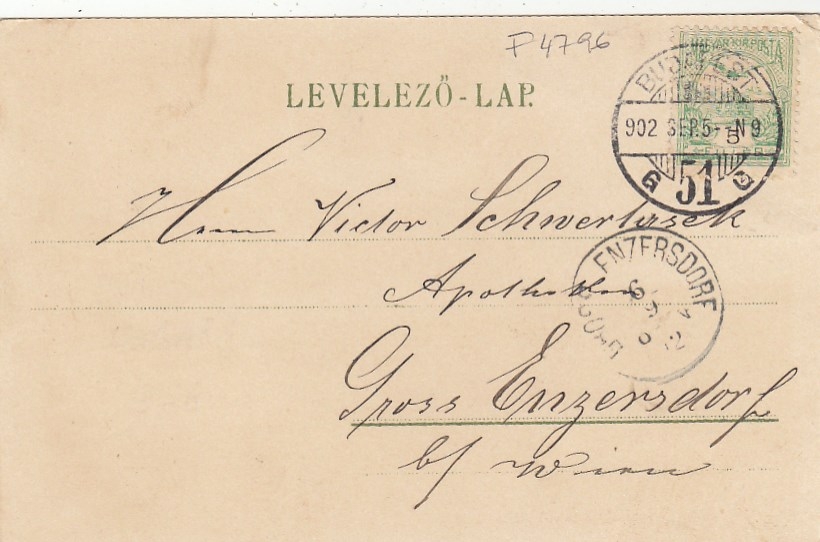 P4796
MAGYAR KIR. POSTA
BUDAPEST
902 SEP. 5 - N 9
5
51
LEVELEZŐ-LAP.
Herrn Victor Schwertasek
Apotheker
ENZERSDORF
Gross Enzersdorf
b/ Wien